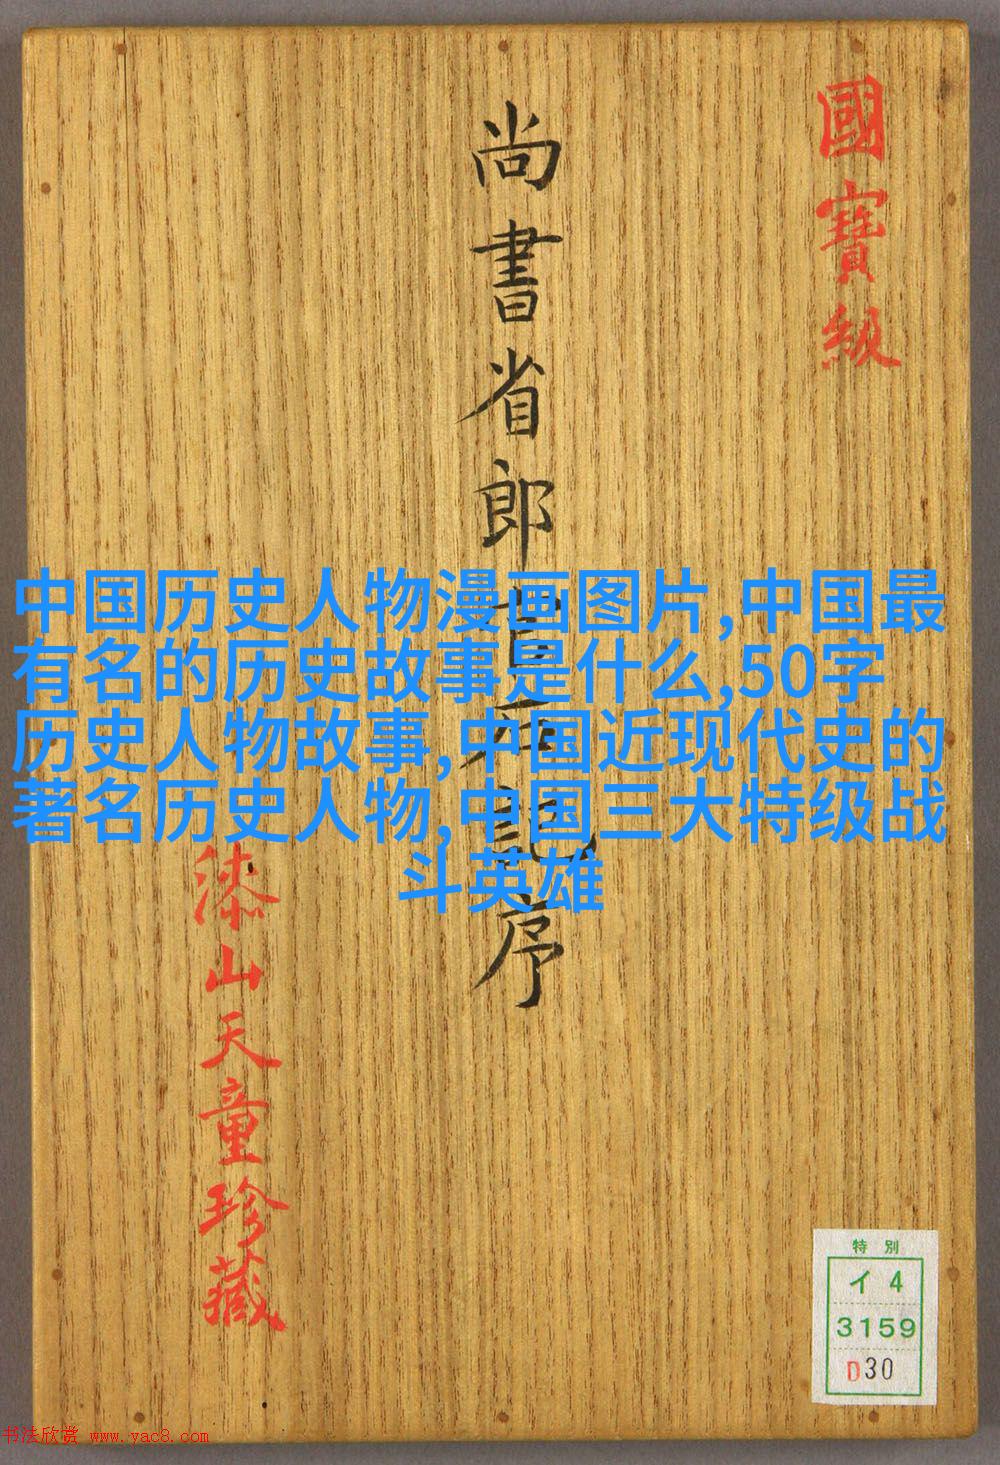 國寶級
尚書省郎官石記序
中国历史人物漫画图片,中国最
有名的历史故事是什么,50字
历史人物故事,中国近现代史的
著名历史人物,中国三大特级战
斗英雄
漆山天童珍藏
特別
イ 4
3159
D30
书法欣赏 www.yac8.com